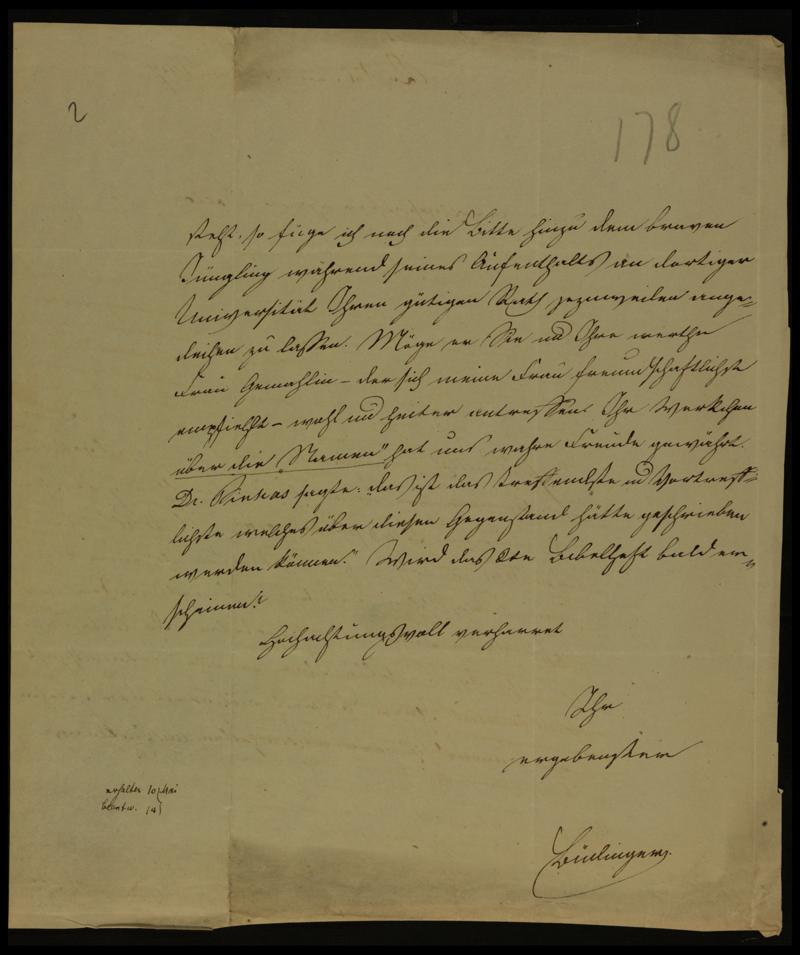 2
178
steht, so füge ich noch die Bitte hinzu dem braven
Jüngling während seines Aufenthalts an dortiger
Universität Ihren gütigen Rath zuweilen ange-
deihen zu lassen. Möge er Sie und Ihre werthe
Frau Gemahlin – der sich meine Frau freundschaftlichst
empfiehlt – wohl und heiter antreffen. Ihr Werkchen
über die "Namen" hat uns wahre Freude gewährt.
Dr. Pinhas sagte: "das ist das Treffendste und Vortreff-
lichste welches über diesen Gegenstand hätte geschrieben
werden können." Wird das 2te Bibelheft bald er-
scheinen?
Hochachtungsvoll verharret
Ihr
ergebenster
Büdinger.
erhalten 10 Mai
beantw. 14